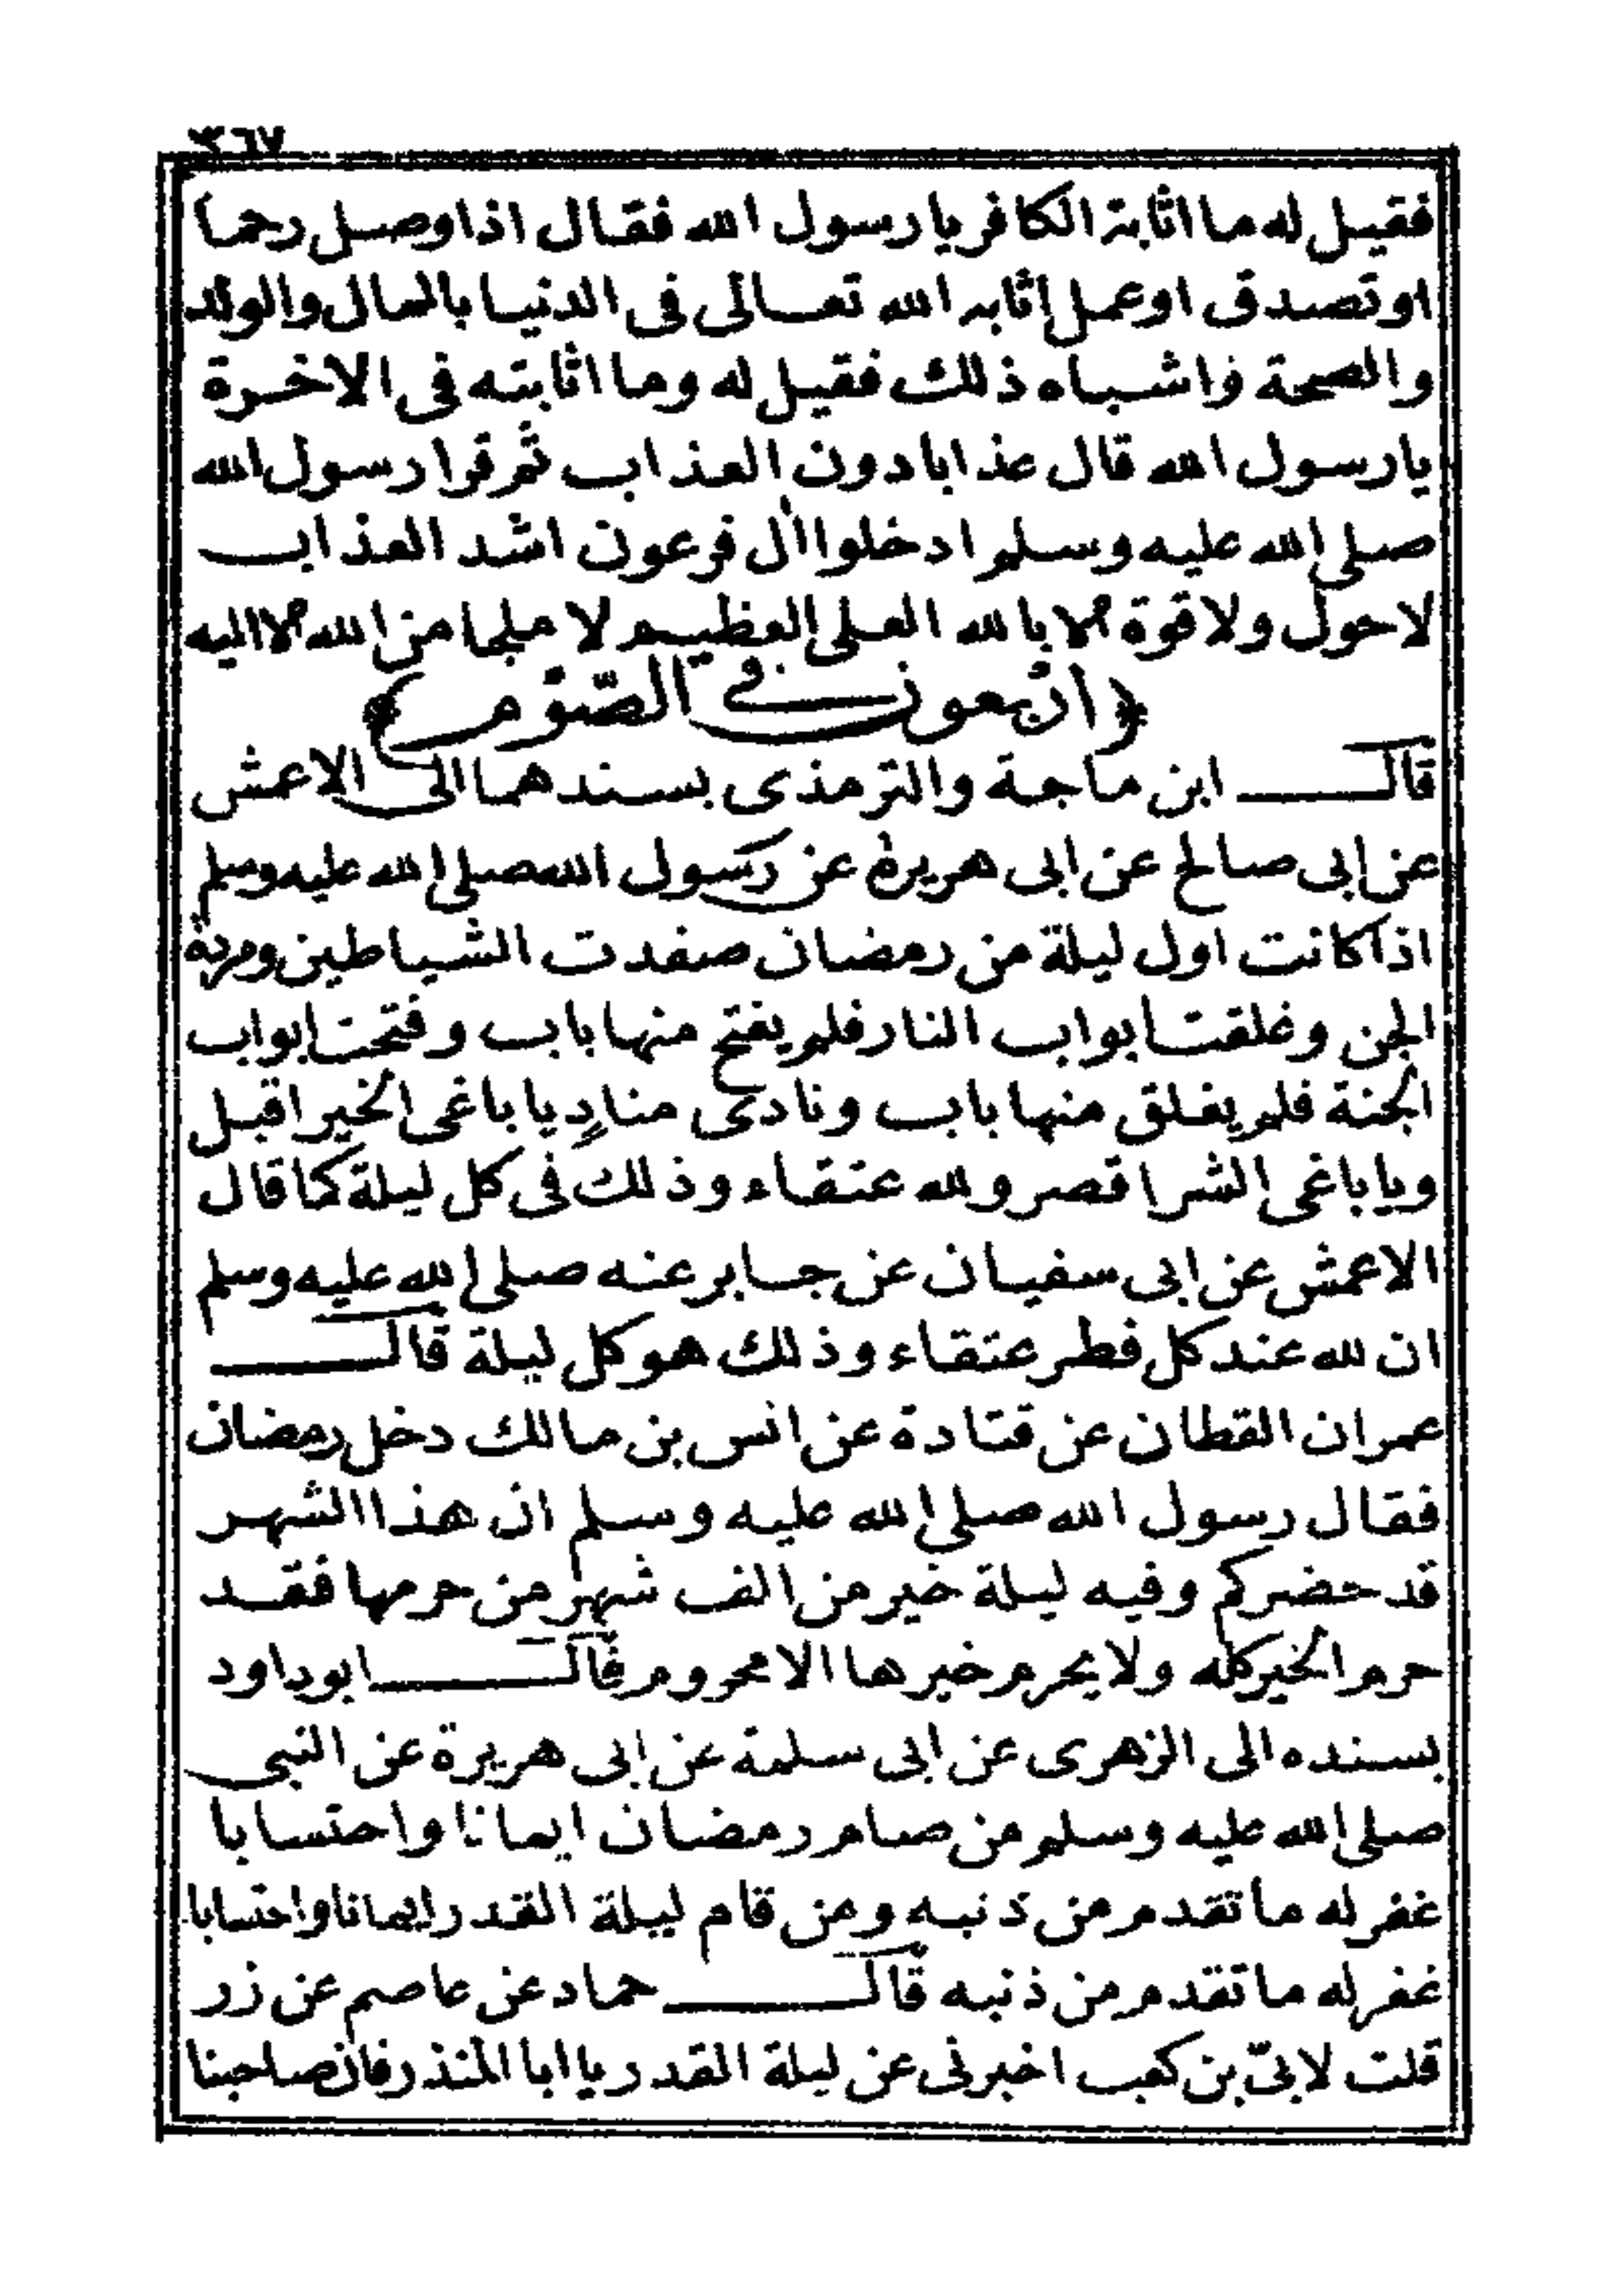 ٣٦٧
فقيل له ما اثابة الكافر يا رسول الله فقال اذا وصل رحما
او تصدق او عمل اثابه الله تعالى فى الدنيا بالمال والولد
والصحة واشباه ذلك فقيل له وما اثابته فى الاخرة
يا رسول الله قال عذابا دون العذاب ثم قرا رسول الله
صلى الله عليه وسلم ادخلوا اٰل فرعون اشد العذاب
لا حول ولا قوة الا بالله العلى العظيم لا ملجا من الله الا اليه
﴿ اربعون فى الصّوْم ﴾
قال ابن ماجة والترمذى بسندهما الى الاعمش
عن ابى صالح عن ابى هريرة عن رسول الله صلى الله عليه وسلم
اذا كانت اول ليلة من رمضان صفدت الشياطين ومردة
الجن وغلقت ابواب النار فلم يفتح منها باب وفتحت ابواب
الجنة فلم يغلق منها باب ونادى منادٍ يا باغى الخير اقبل
ويا باغى الشر اقصر ولله عتقاء وذلك فى كل ليلة كما قال
الاعمش عن ابى سفيان عن جابر عنه صلى الله عليه وسلم
ان لله عند كل فطر عتقاء وذلك هو كل ليلة قال
عمران القطان عن قتادة عن انس بن مالك دخل رمضان
فقال رسول الله صلى الله عليه وسلم ان هذا الشهر
قد حضركم وفيه ليلة خير من الف شهر من حرمها فقد
حرم الخير كله ولا يحرم خيرها الا محروم قال ابو داود
بسنده الى الزهرى عن ابى سلمة عن ابى هريرة عن النبى
صلى الله عليه وسلم من صام رمضان ايمانا واحتسابا
غفر له ما تقدم من ذنبه ومن قام ليلة القدر ايمانا واحتسابا
غفر له ما تقدم من ذنبه قال حماد عن عاصم عن زر
قلت لابىّ بن كعب اخبرنى عن ليلة القدر يا ابا المنذر فان صاحبنا